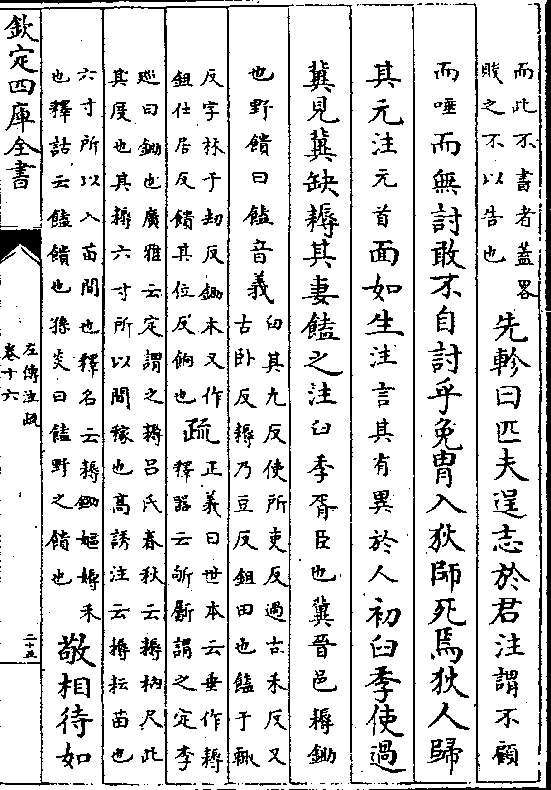 而此不書者蓋畧
賤之不以告也
先軫曰匹夫逞志於君注謂不顧
而唾而無討敢不自討乎免胄入狄師死焉狄人歸
其元注元首面如生注言其有異於人初臼季使過
冀見冀缺耨其妻饁之注臼季胥臣也冀晉邑耨鋤
也野饋曰饁音義
臼其九反使所吏反過古禾反又
古卧反耨乃豆反鉏田也饁于輒
反字林于刧反鋤本又作
鉏仕居反饋其位反餉也
疏
正義曰世本云垂作耨
釋器云斪斸謂之定李
廵曰鋤也廣雅云定謂之耨呂氏春秋云耨柄尺此
其度也其耨六寸所以間稼也高誘注云耨耘苗也
六寸所以入苗間也釋名云耨鋤嫗耨禾
也釋詁云饁饋也孫炎曰饁野之饋也
敬相待如
欽定四庫全書
左傳注疏
卷十六
二十五